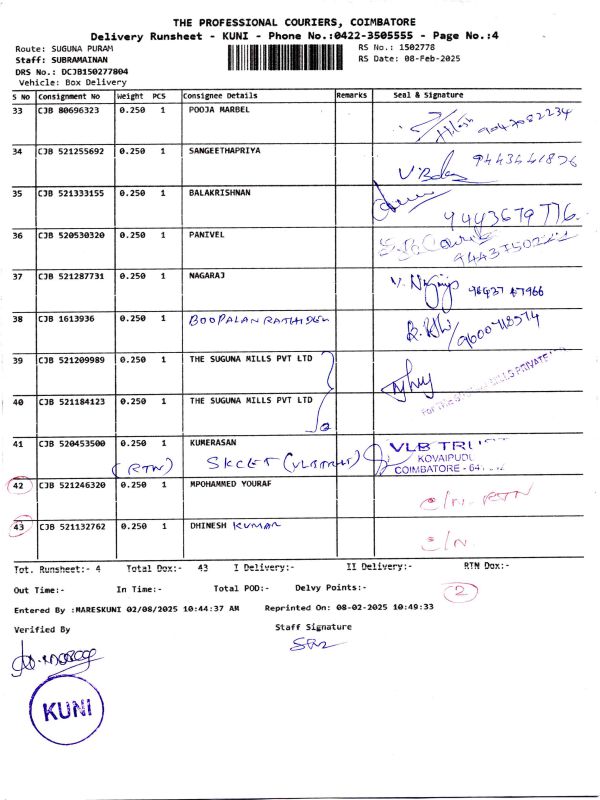 THE PROFESSIONAL COURIERS, COIMBATORE
Delivery Runsheet - KUNI - Phone No.:0422-3505555 - Page No.:4
Route: SUGUNA PURAM
RS No.: 1502778
Staff: SUBRAMAINAN
RS Date: 08-Feb-2025
DRS No.: DCJB150277804
Vehicle: Box Delivery
S No Consignment No Weight PCS Consignee Details Remarks Seal & Signature
33 CJB 80696323 0.250 1 POOJA MARBEL
34 CJB 521255692 0.250 1 SANGEETHAPRIYA
35 CJB 521333155 0.250 1 BALAKRISHNAN 9443679776
36 CJB 520530320 0.250 1 PANIVEL
37 CJB 521287731 0.250 1 NAGARAJ
38 CJB 1613936 0.250 1 BOOPALAN RATHIDEV
39 CJB 521209989 0.250 1 THE SUGUNA MILLS PVT LTD
40 CJB 521184123 0.250 1 THE SUGUNA MILLS PVT LTD
41 CJB 520453500 0.250 1 KUMERASAN VLB TRUST
(RTN) SKCET (VLBTRUST) KOVAIPUDU
COIMBATORE - 641 042
42 CJB 521246320 0.250 1 MPOHAMMED YOURAF C/N. RTN
43 CJB 521132762 0.250 1 DHINESH KUMAR C/N.
Tot. Runsheet:- 4 Total Dox:- 43 I Delivery:- II Delivery:- RTN Dox:-
Out Time:- In Time:- Total POD:- Delvy Points:- 2
Entered By :MARESKUNI 02/08/2025 10:44:37 AM Reprinted On: 08-02-2025 10:49:33
Verified By Staff Signature
KUNI